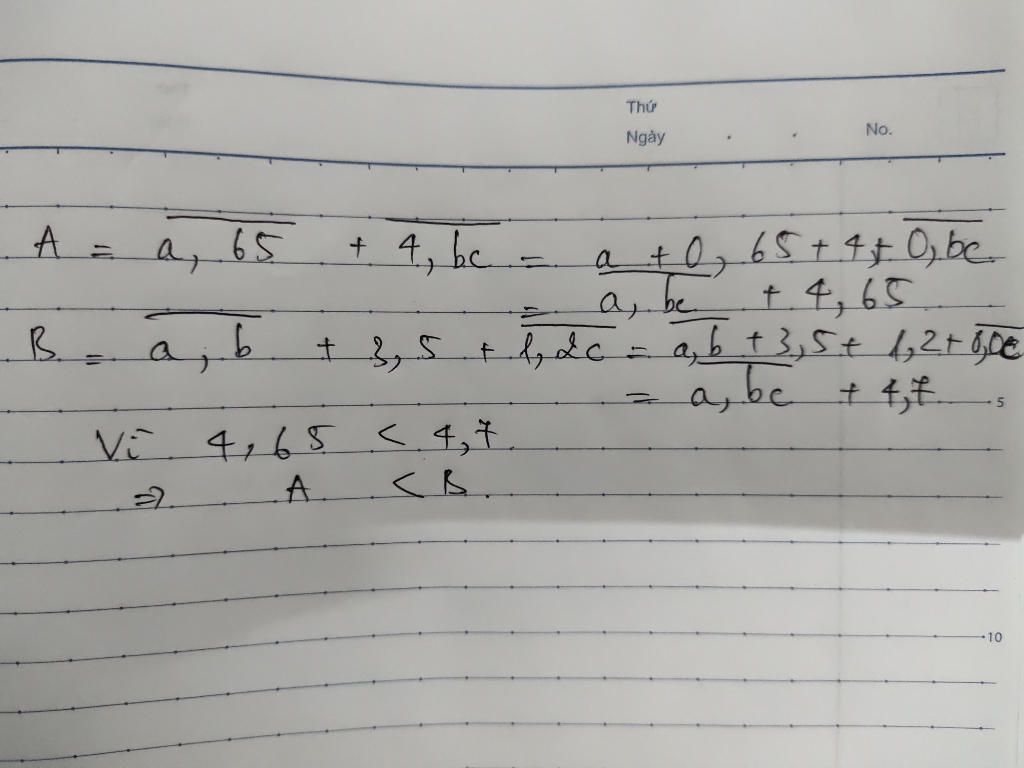 Thứ
Ngày . . No.
A = a, 65 + 4, bc = a + 0, 65 + 4 + 0, bc
= a, bc + 4, 65
B = a, b + 3, 5 + 1, 2c = a, b + 3, 5 + 1, 2 + 0,0c
= a, bc + 4,7
5
Vì 4, 65 < 4, 7
⇒ A < B.
10